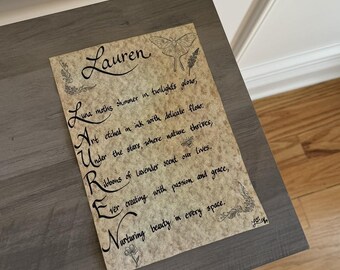 Lauren
Luna moths shimmer in twilights glow,
Art etched in ink with delicate flow.
Under the stars where nature thrives,
Ribbons of lavender scent our lives.
Ever creating with passion and grace,
Nurturing beauty in every space.